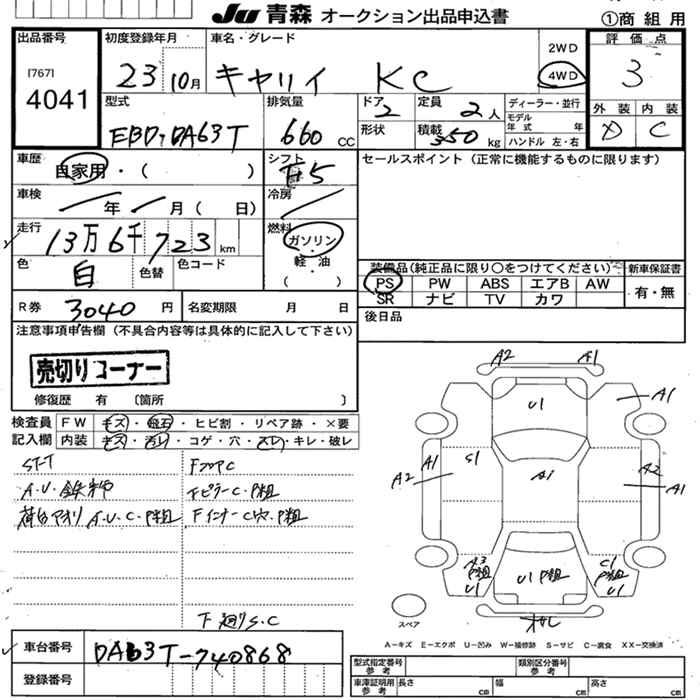 JU 青森 オークション出品申込書
①商組用
出品番号
[767]
4041
初度登録年月
23 10月
車名・グレード
キャリイ KC
2WD
4WD
評価点
3
外装 内装
D C
型式
EBD-DA63T
排気量
660 CC
ドア 2
形状
定員 2人
積載 350 kg
ディーラー・並行
モデル年式 年
ハンドル 左・右
車歴
自家用・( )
シフト
F5
セールスポイント(正常に機能するものに限ります)
車検
年 月( 日)
冷房
走行
13万6千723 km
燃料
ガソリン
・
軽油
( )
色
白
色替
色コード
装備品(純正品に限り○をつけてください)
新車保証書
PS PW ABS エアB AW
SR ナビ TV カワ
有・無
R券 3040円
名変期限 月 日
後日品
注意事項申告欄(不具合内容等は具体的に記入して下さい)
売切りコーナー
修復歴 有 〔箇所 〕
検査員記入欄
FW キズ・飛石・ヒビ割・リペア跡・×要
内装 キズ・汚レ・コゲ・穴・スレ・キレ・破レ
ST-T
FフロアC
A.U.鉄
FピラーC.P粗
荷台アオリ A.U.C.P粗
FインナーC穴.P粗
下廻りS.C
A2 A1
U1
A1
A1
S1
A2
A1
A2
A1
A3
P粗
U1
U1 P粗
C1
P粗
U1
スペア
A-キズ E-エクボ U-凹み W-補修跡 S-サビ C-腐食 XX-交換済
車台番号
DA63T-740868
登録番号
型式指定番号
参考
類別区分番号
参考
車庫証明用
参考
長さ cm
幅 cm
高さ cm